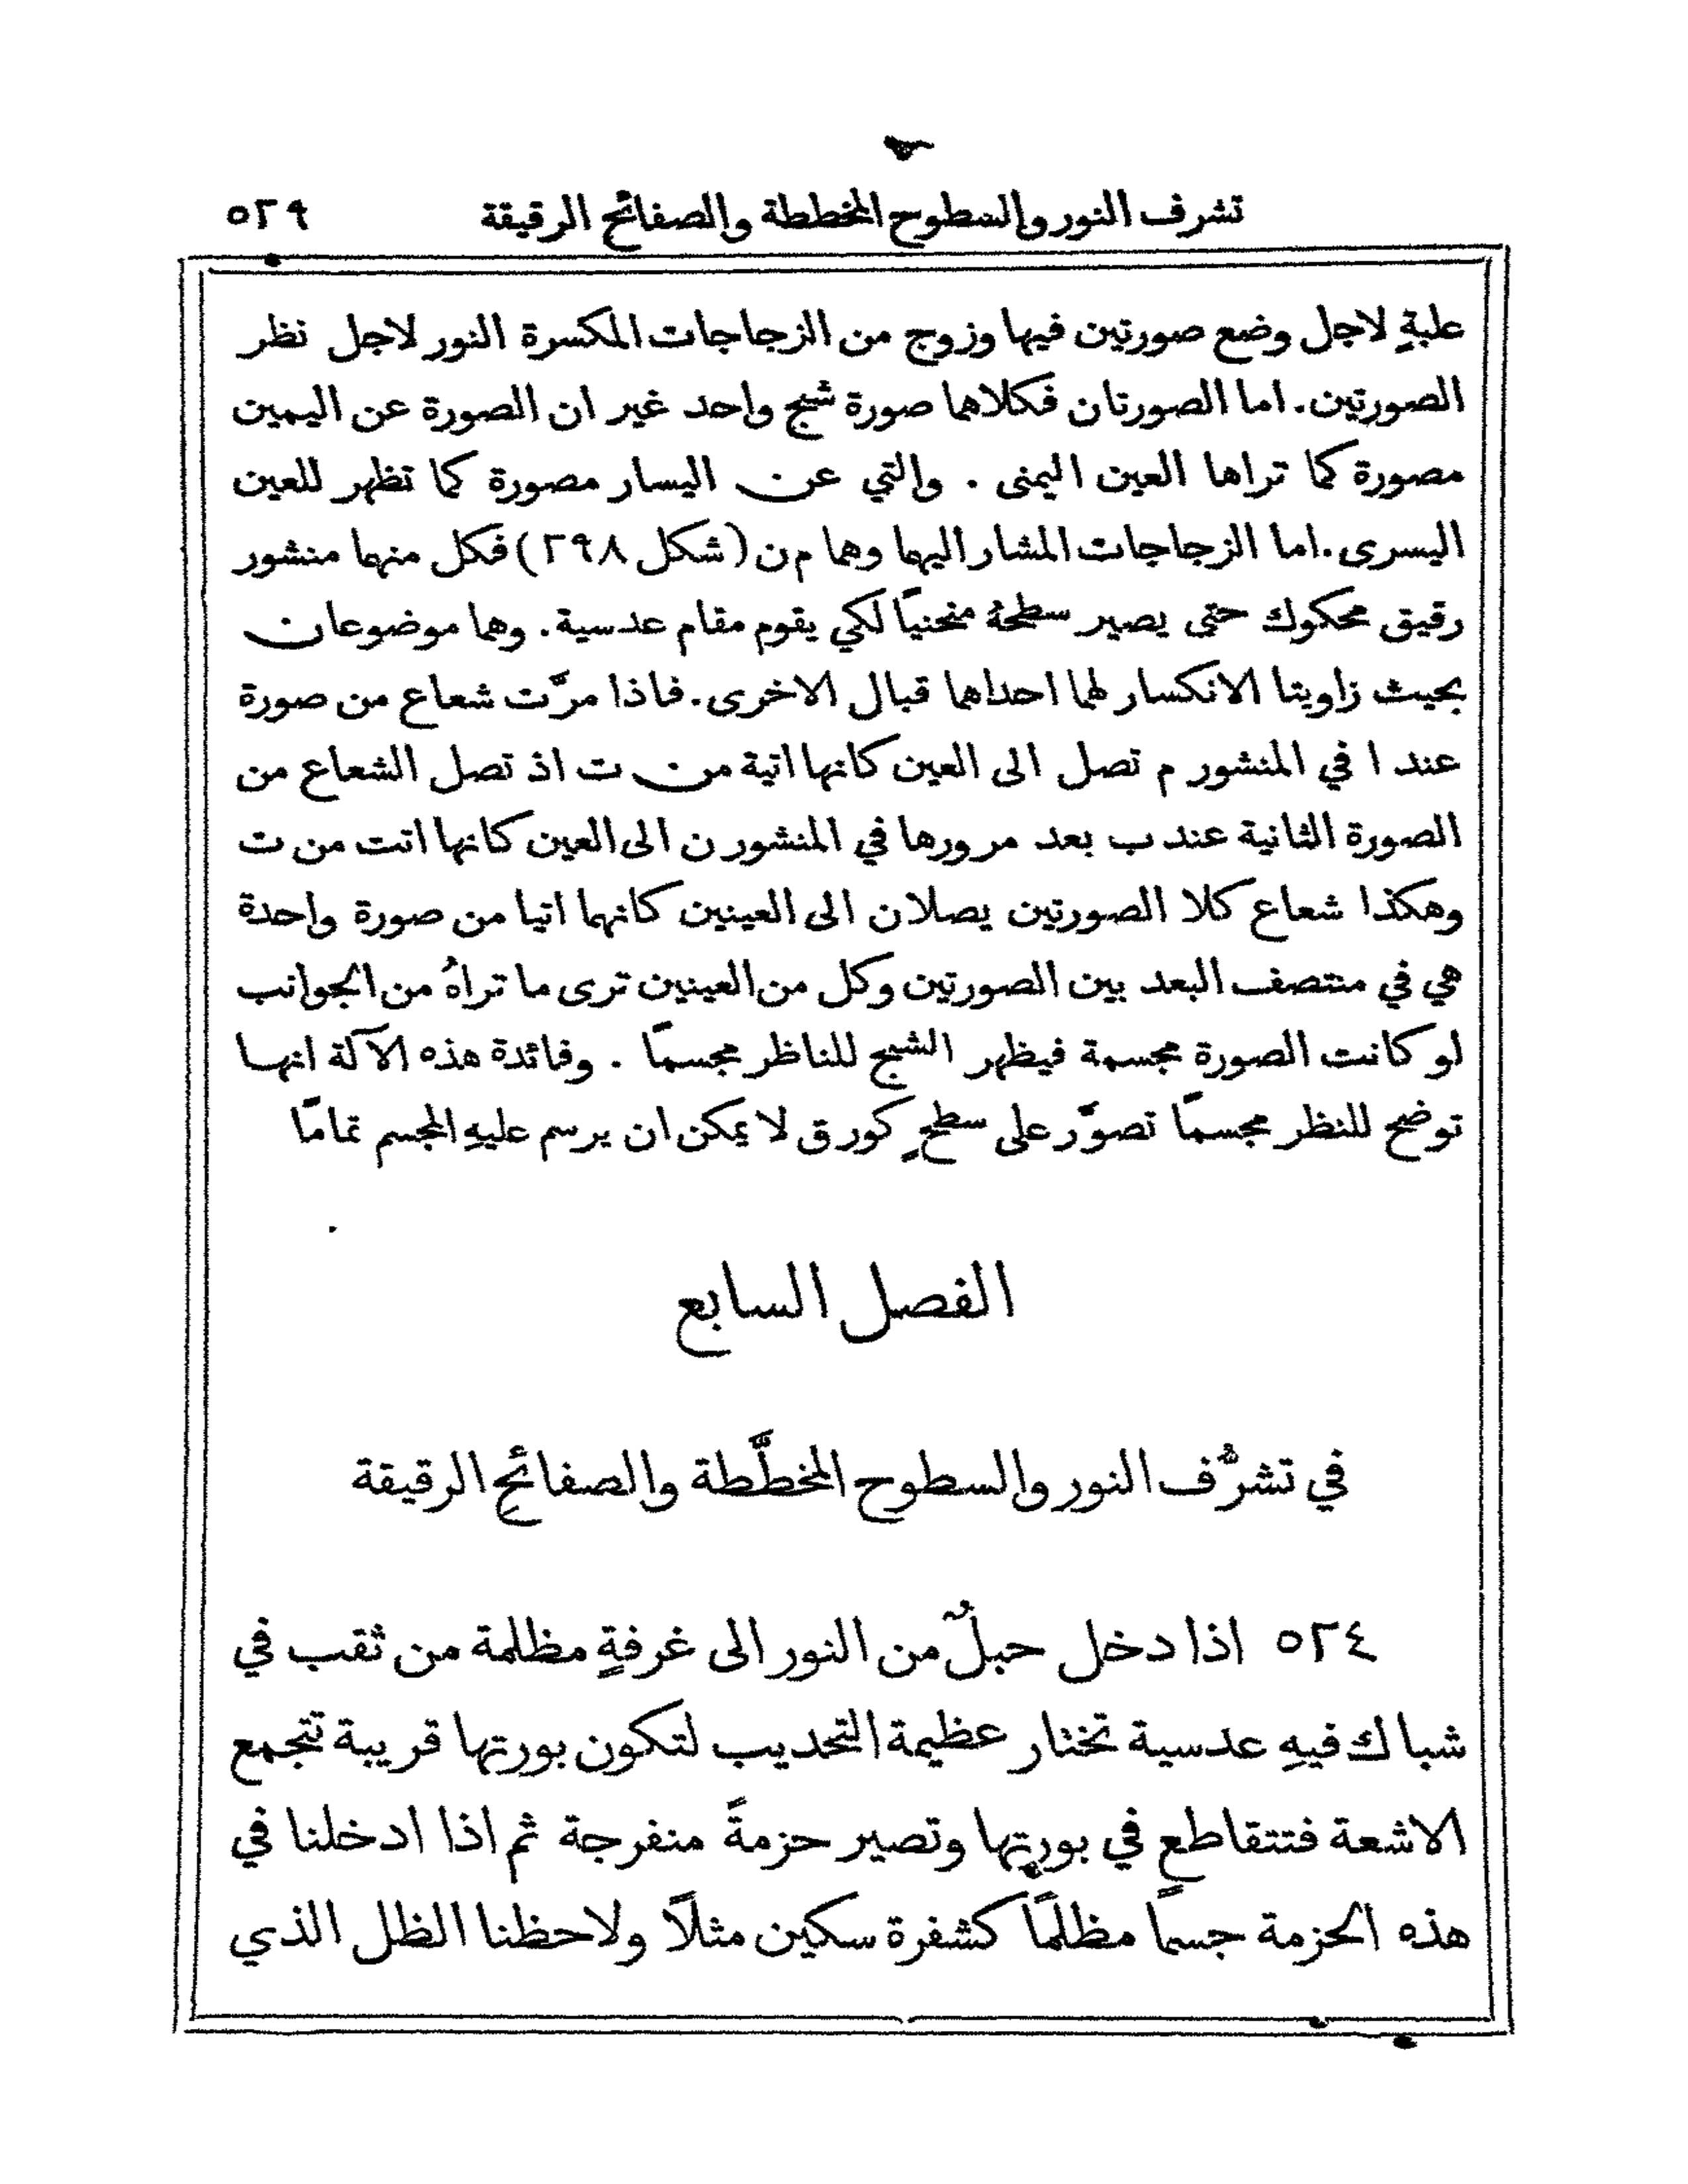 تشرف النور والسطوح المخططة والصفائح الرقيقة ٥٢٩
علبةٍ لاجل وضع صورتين فيها وزوج من الزجاجات المكسرة النور لاجل نظر
الصورتين. اما الصورتان فكلاهما صورة شبح واحد غير ان الصورة عن اليمين
مصورة كما تراها العين اليمنى . والتي عن اليسار مصورة كما تظهر للعين
اليسرى. اما الزجاجات المشار اليها وهما م ن (شكل ٢٩٨) فكل منهما منشور
رقيق محكوك حتى يصير سطحهُ منحنياً لكي يقوم مقام عدسية. وهما موضوعان
بحيث زاويتا الانكسار لهما احداهما قبال الاخرى. فاذا مرَّت شعاع من صورة
عند ا في المنشور م تصل الى العين كانها اتية من ت اذ تصل الشعاع من
الصورة الثانية عند ب بعد مرورها في المنشور ن الى العين كانها اتت من ت
وهكذا شعاع كلا الصورتين يصلان الى العينين كانهما اتيا من صورة واحدة
هي في منتصف البعد بين الصورتين وكل من العينين ترى ما تراهُ من الجوانب
لو كانت الصورة مجسمة فيظهر الشبح للناظر مجسماً . وفائدة هذه الآلة انها
توضح للنظر مجسماً تصوَّر على سطحٍ كورق لا يمكن ان يرسم عليهِ المجسم تماماً
الفصل السابع
في تشرُّف النور والسطوح المخطَّطة والصفائح الرقيقة
٥٢٤ اذا دخل حبلٌ من النور الى غرفةٍ مظلمة من ثقب في
شباك فيهِ عدسية تختار عظيمة التحديب لتكون بورتها قريبة تتجمع
الاشعة فتتقاطع في بورتها وتصير حزمةً منفرجة ثم اذا ادخلنا في
هذه الحزمة جسماً مظلماً كشفرة سكين مثلاً ولاحظنا الظل الذي